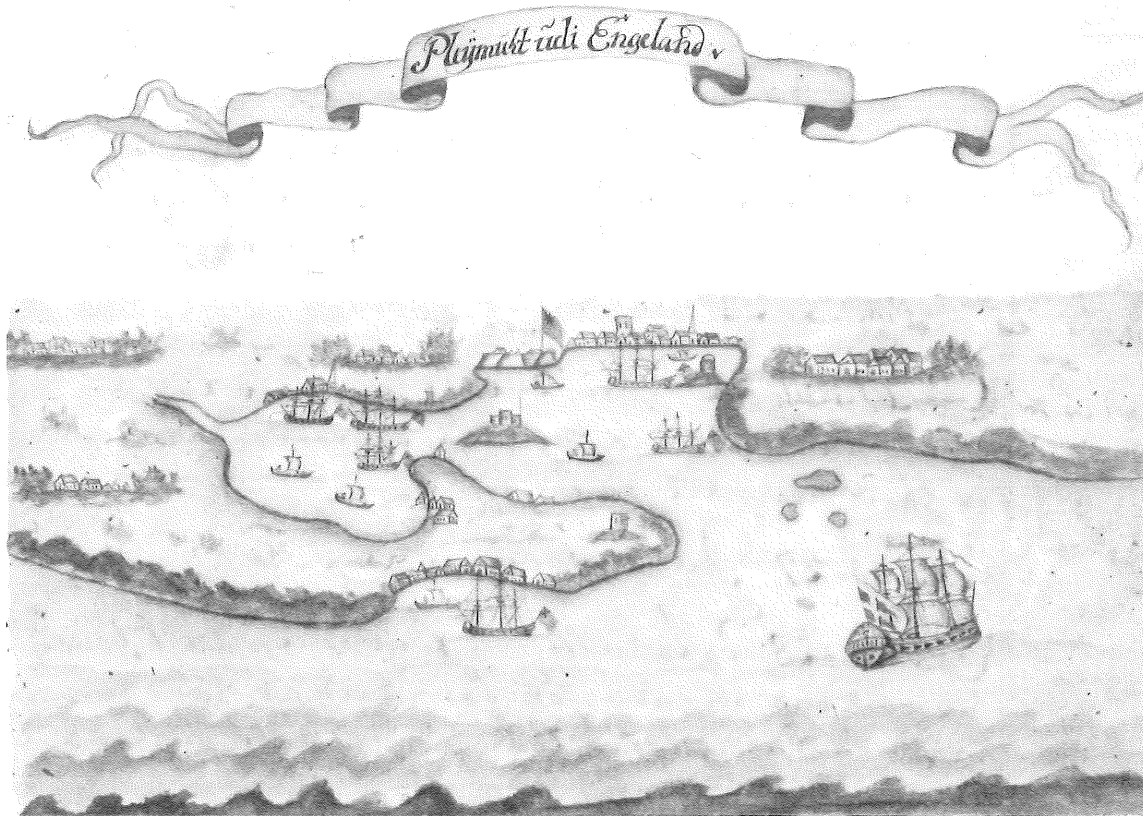 Plijmutt ũdi Engeland.